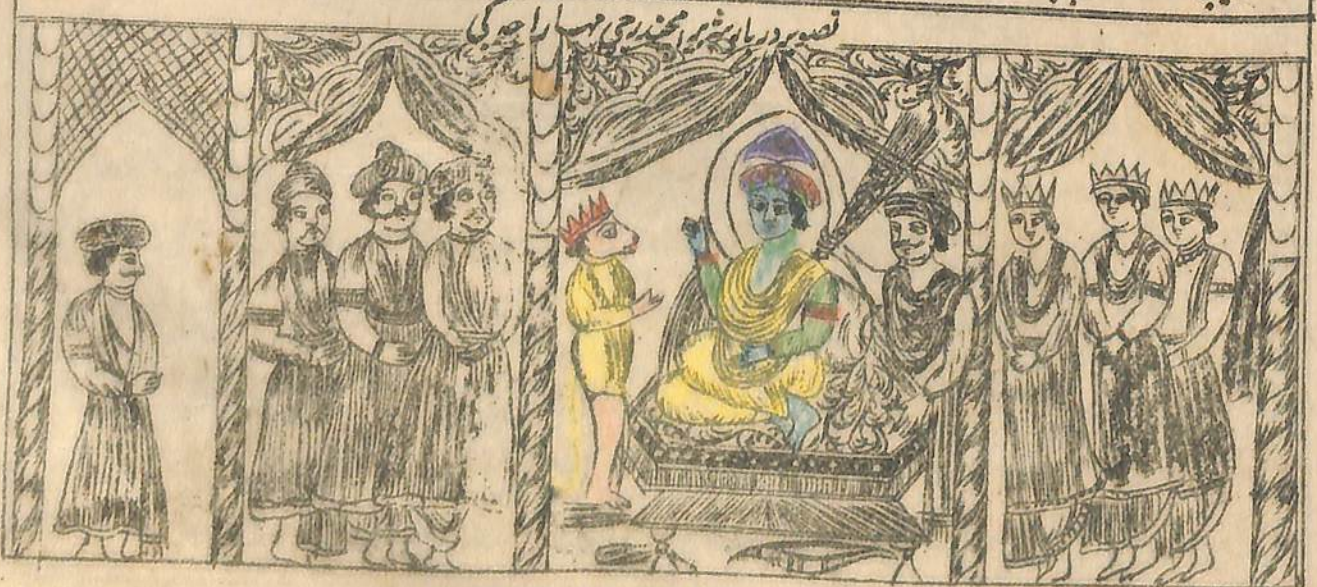 تصویر دربار شری رامچندر جی مہاراجہ کی